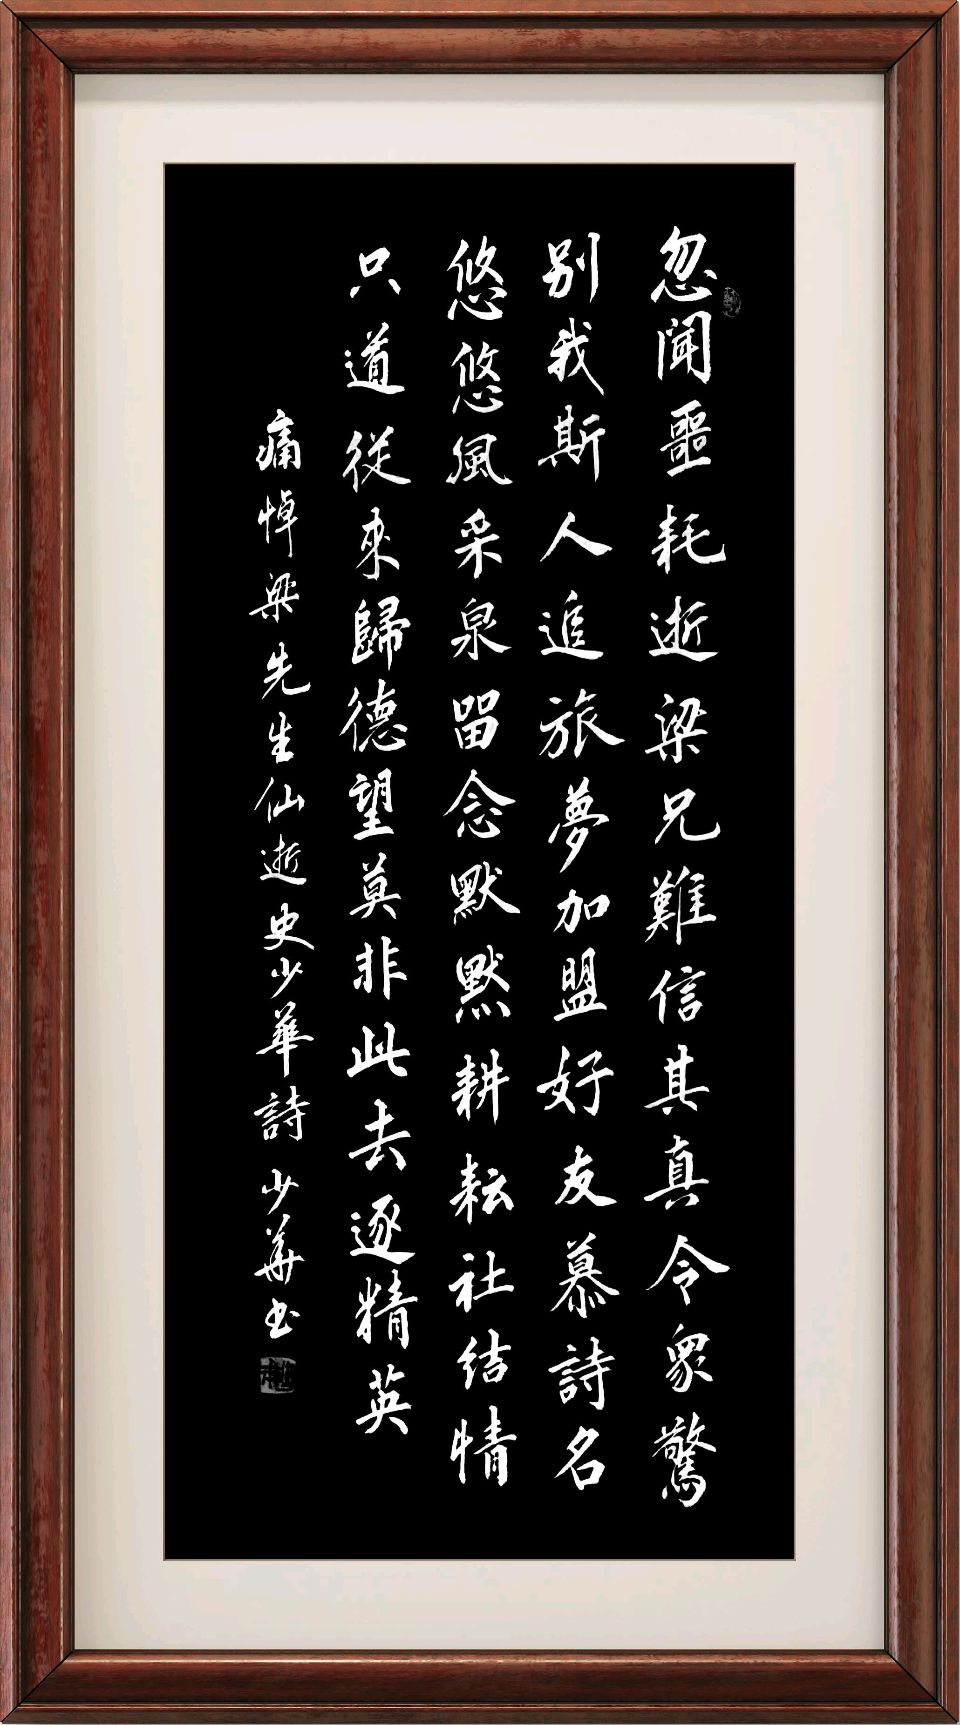 忽聞噩耗逝梁兄難信其真令衆驚
别我斯人追旅夢加盟好友慕詩名
悠悠風采泉留念默默耕耘社結情
只道從來歸德望莫非此去逐精英
痛悼梁先生仙逝史少華詩少華书